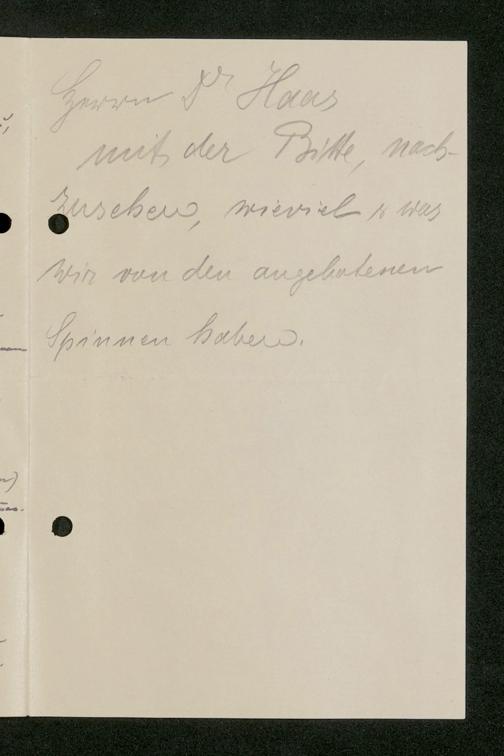 Herrn Dr Haas
mit der Bitte, nach-
zusehen, wieviel & was
wir von den angebotenen
Spinnen haben.